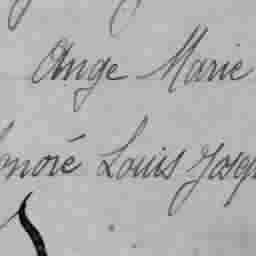 Ange Marie
onoré Louis Josep